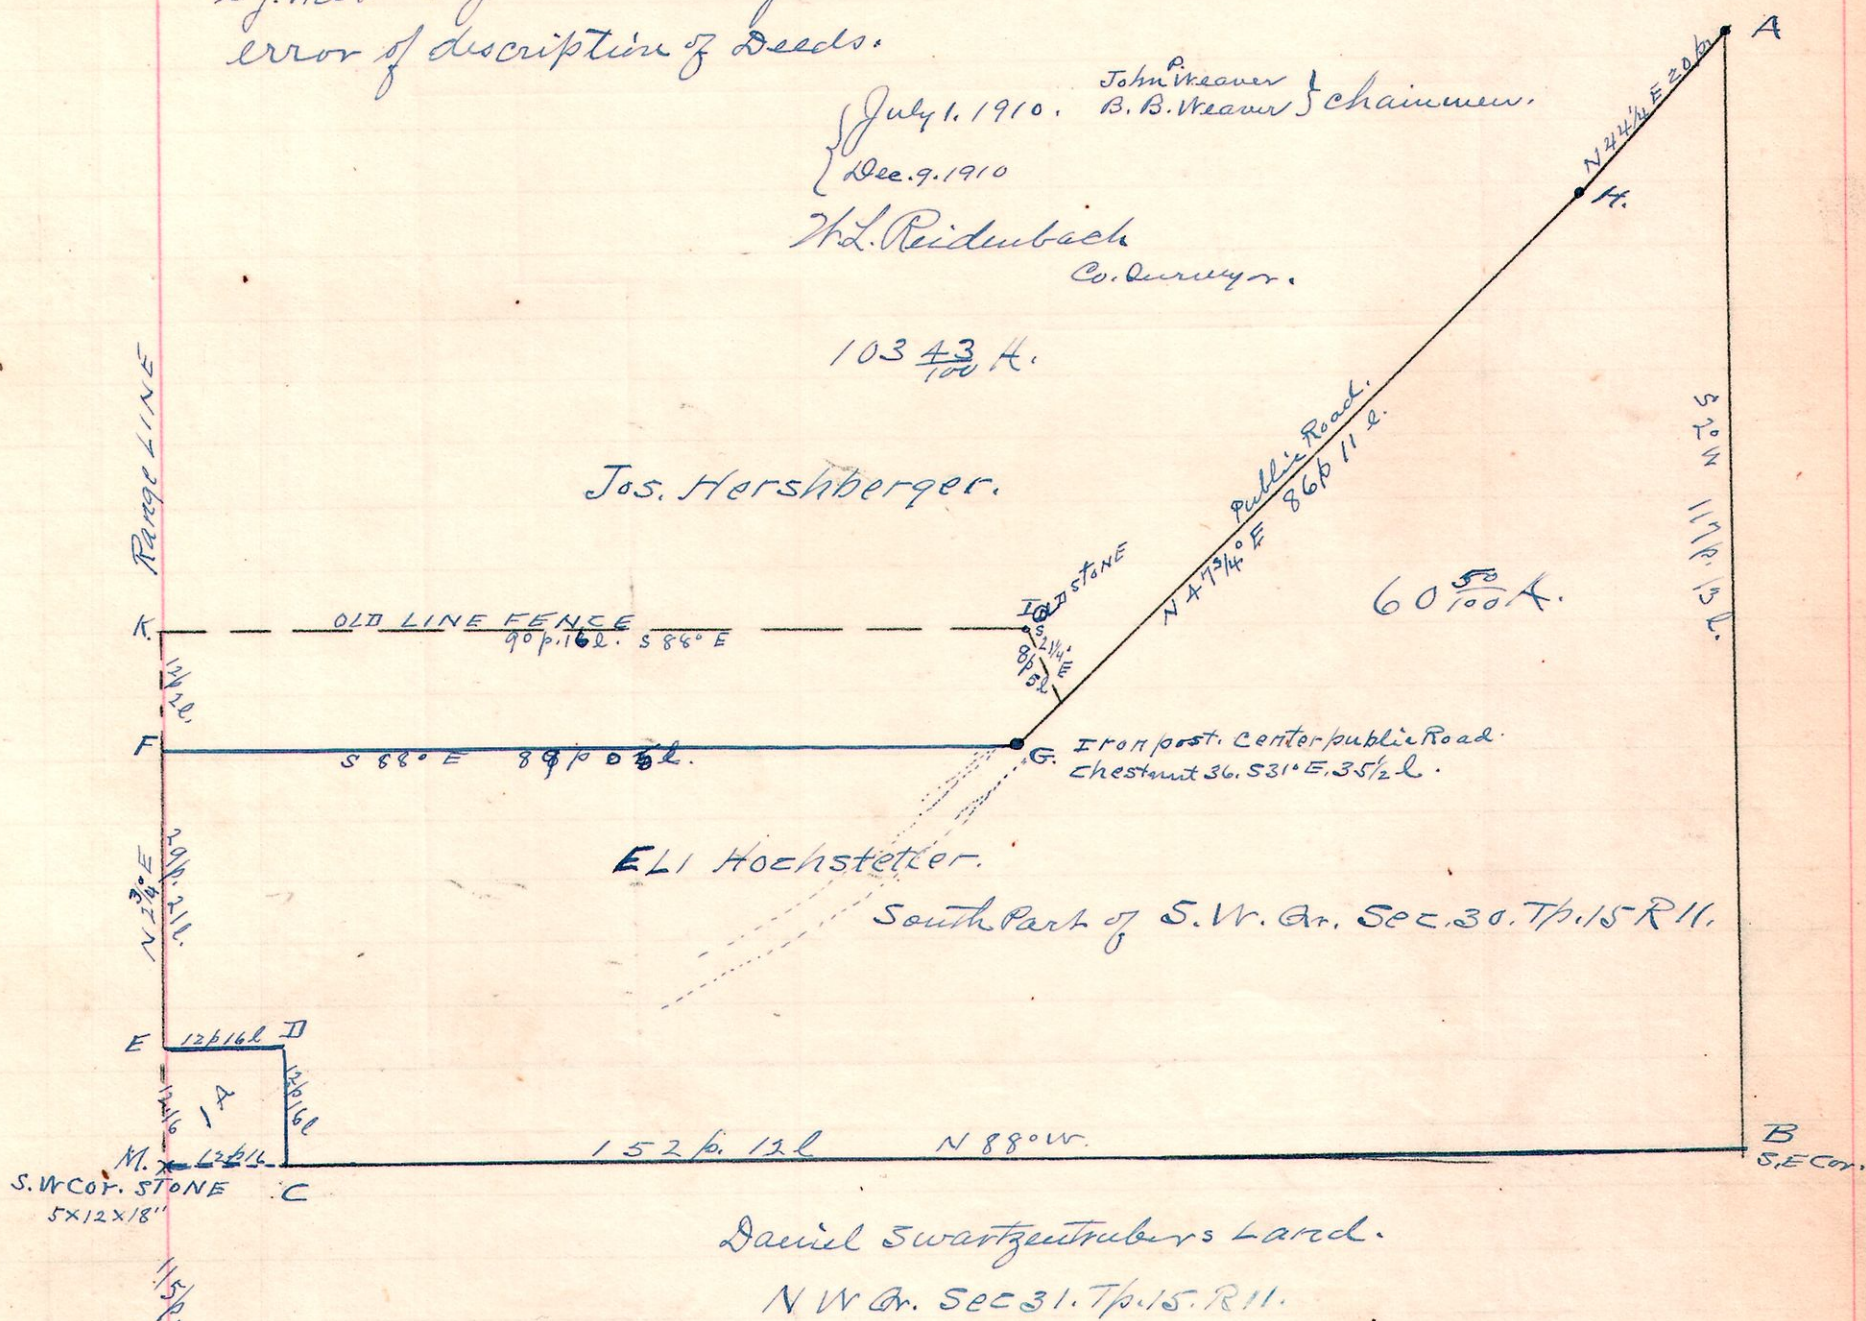 error of description of Deeds.
July 1. 1910.
Dec. 9. 1910
John P. Weaver
B. B. Weaver } chainmen.
W. L. Reidenbach
Co. Surveyor.
103 43/100 A.
A
N 44 1/4 E 20 p
H.
Range LINE
Jos. Hershberger.
Public Road.
N 47 3/4° E 86 p 11 l.
S 2° W 117 p. 13 l.
60 50/100 A.
K.
OLD LINE FENCE
90 p. 16 l. S 88° E
I OLD STONE
S 21 1/4° E
8 p 5 l
12 p 2 l.
F
S 88° E 89 p 05 l.
G. Iron post. Center public Road.
Chestnut 36. S 31° E. 35 1/2 l.
N 2 3/4° E
29 p. 21 l.
ELI Hochstetler.
South Part of S. W. Qr. Sec. 30. Tp. 15 R 11.
E
12 p 16 l
D
12 16
1 A
12 p 16 l
M.
12 p 16
C
152 p. 12 l N 88° W.
B
S. E Cor.
S. W Cor. STONE
5 x 12 x 18"
Daniel Swartzentrubers Land.
N W Qr. Sec 31. Tp. 15. R 11.
115 p